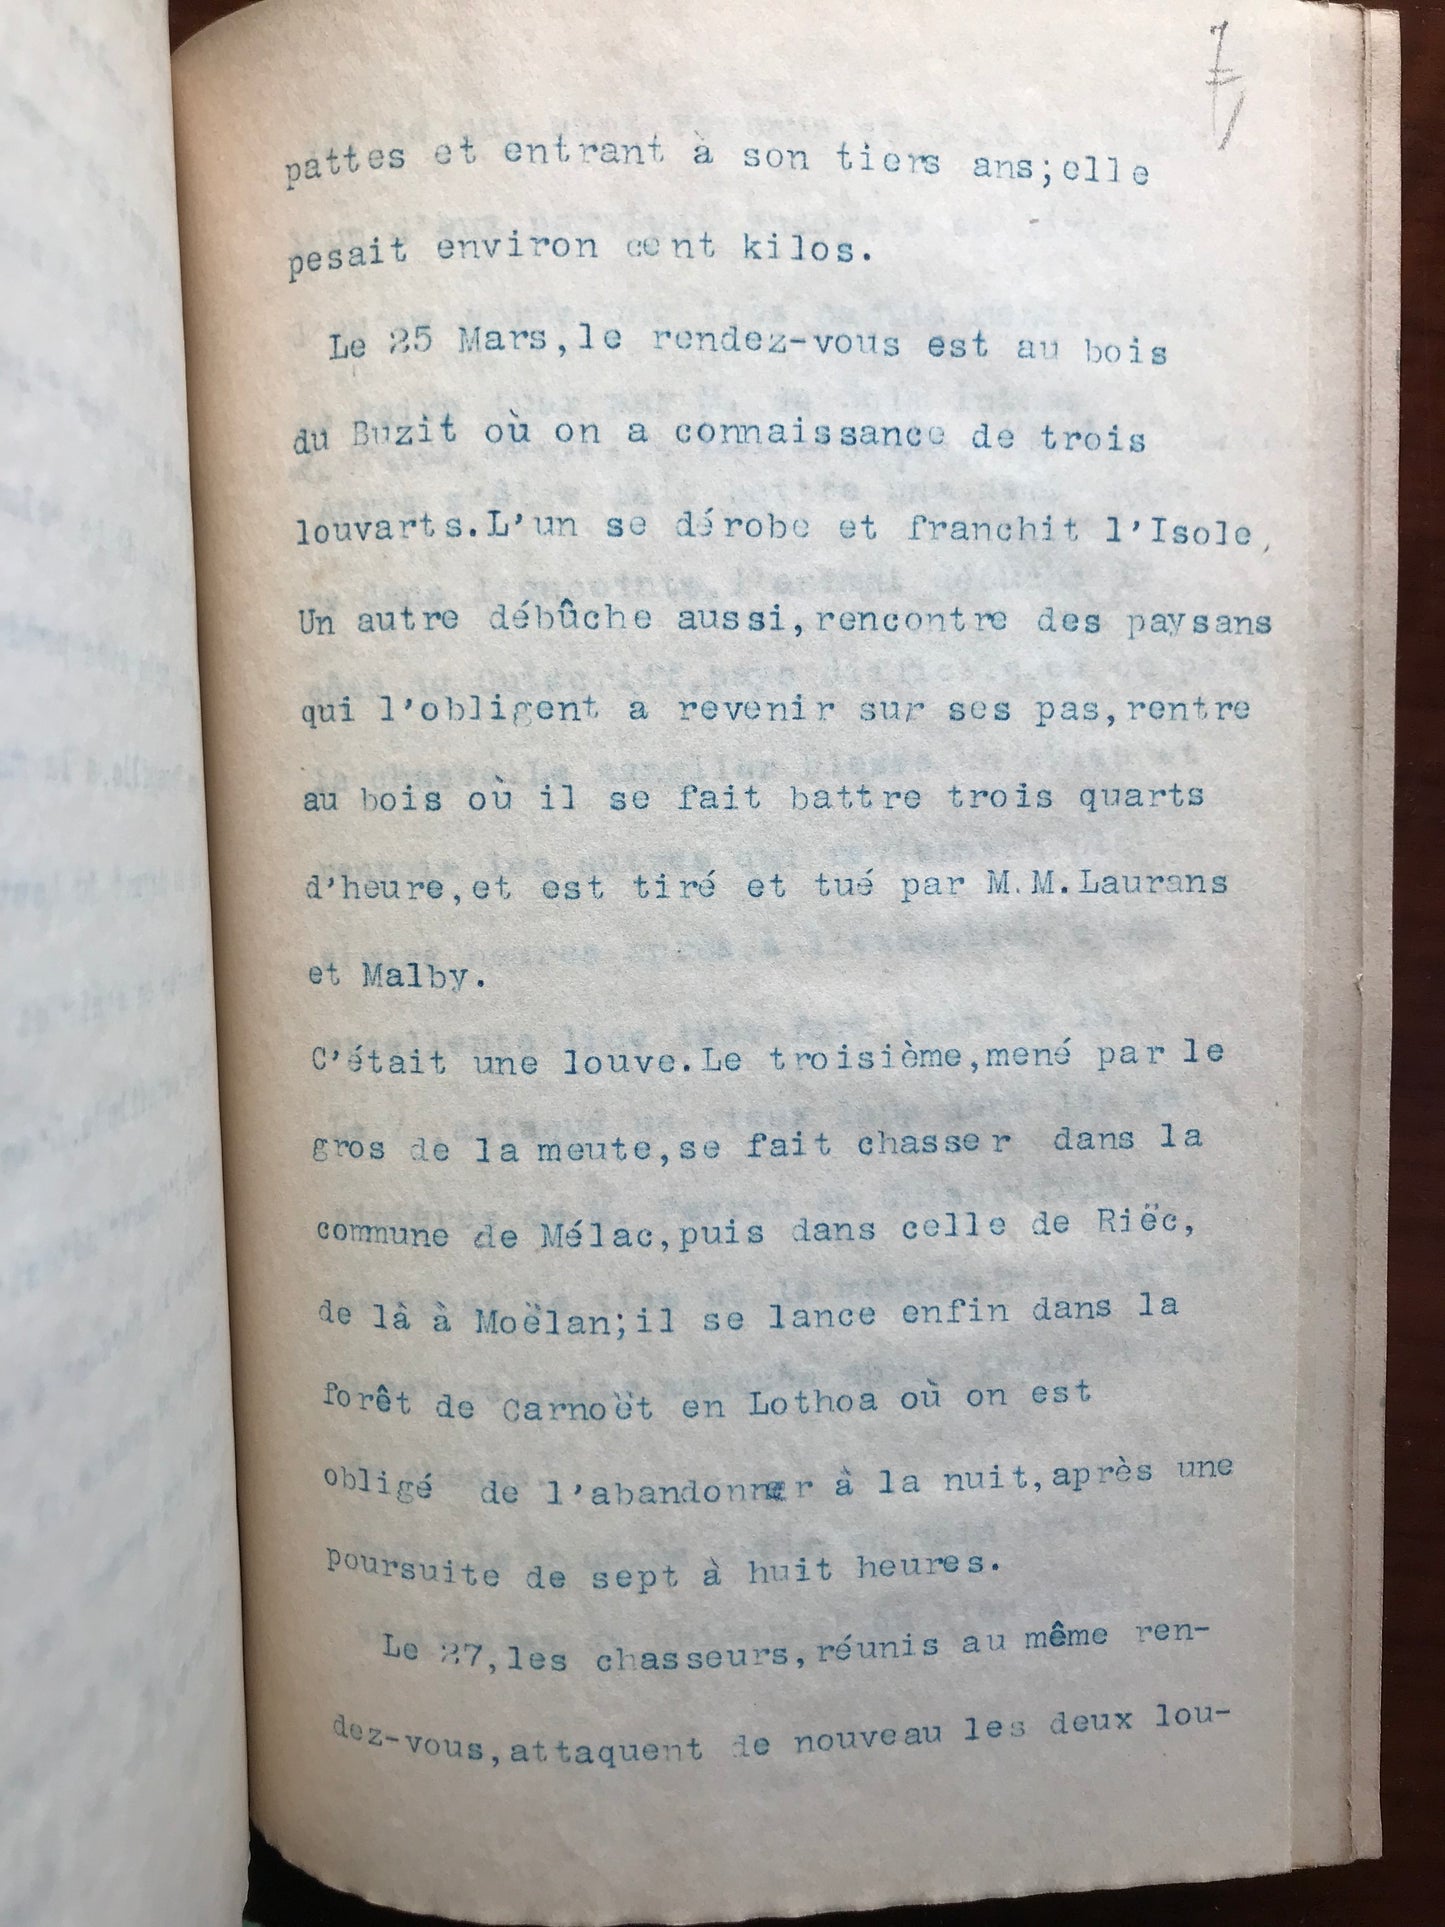 7
pattes et entrant à son tiers ans;elle
pesait environ cent kilos.
Le 25 Mars,le rendez-vous est au bois
du Buzit où on a connaissance de trois
louvarts.L'un se dérobe et franchit l'Isole,
Un autre débûche aussi,rencontre des paysans
qui l'obligent a revenir sur ses pas,rentre
au bois où il se fait battre trois quarts
d'heure,et est tiré et tué par M.M.Laurans
et Malby.
C'était une louve.Le troisième,mené par le
gros de la meute,se fait chasser dans la
commune de Mélac,puis dans celle de Riëc,
de là à Moëlan;il se lance enfin dans la
forêt de Carnoët en Lothoa où on est
obligé de l'abandonner à la nuit,après une
poursuite de sept à huit heures.
Le 27,les chasseurs,réunis au même ren-
dez-vous,attaquent de nouveau les deux lou-